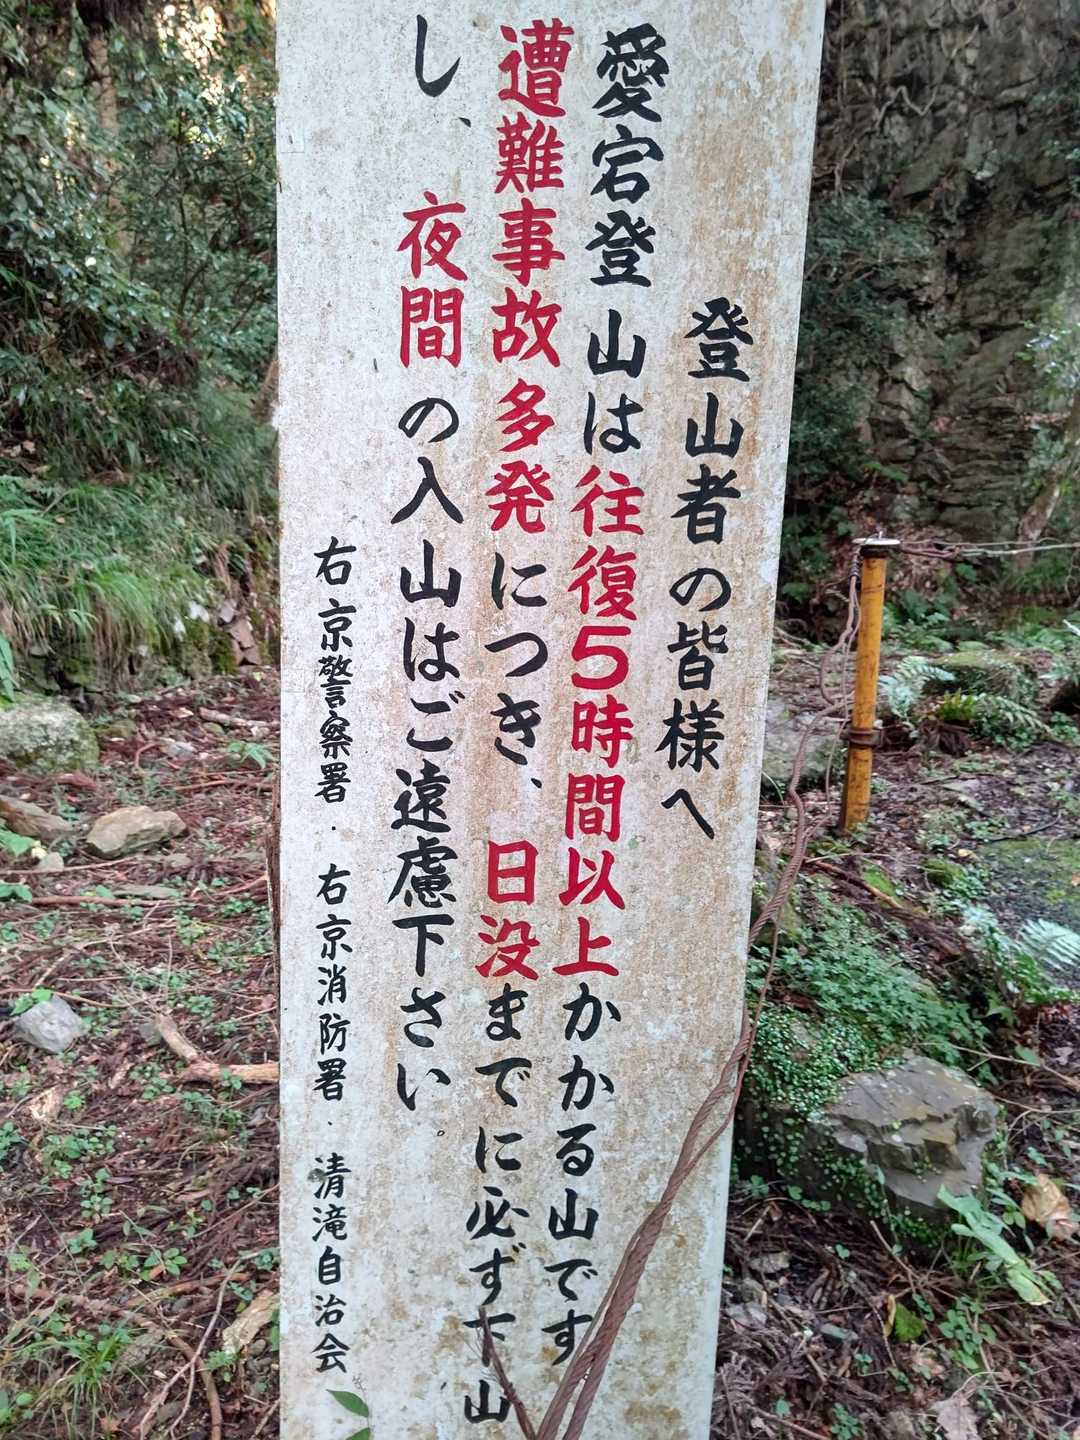 登山者の皆様へ
愛宕登山は往復5時間以上かかる山です
遭難事故多発につき、日没までに必ず下山
し、夜間の入山はご遠慮下さい。
右京警察署・右京消防署・清滝自治会